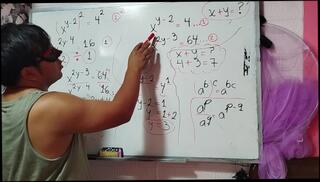 x^{y-2} = 4^2
x^{2y-4} = 16 ①
÷ 1
x^{2y-3} = 64
x^{2y-4} 16
x^{y-2} = 4 ... ①
x^{2y-3} = 64 ... ②
x + y = ?
4 + 3 = 7
y - 2 = 1
y = 1 + 2
y = 3
x + y = ?
a^{b^c} = a^{bc}
a^p
a^q = a^{p-q}